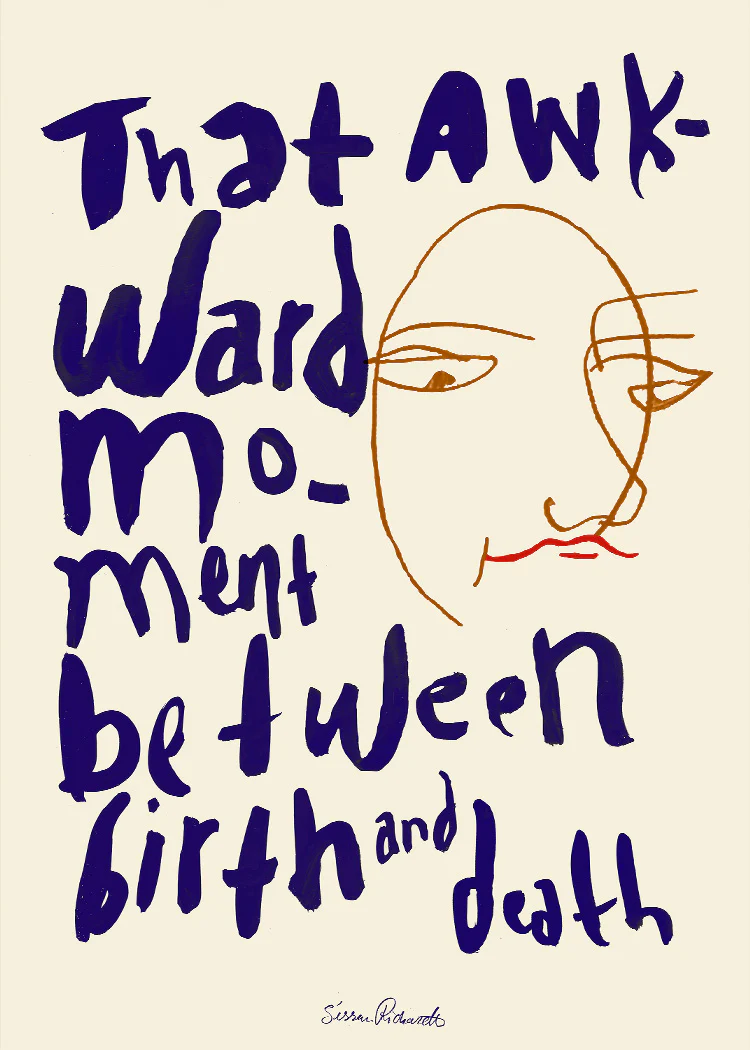 That AWK-
Ward
mo-
ment
between
birth and
death
Sissan Richardt